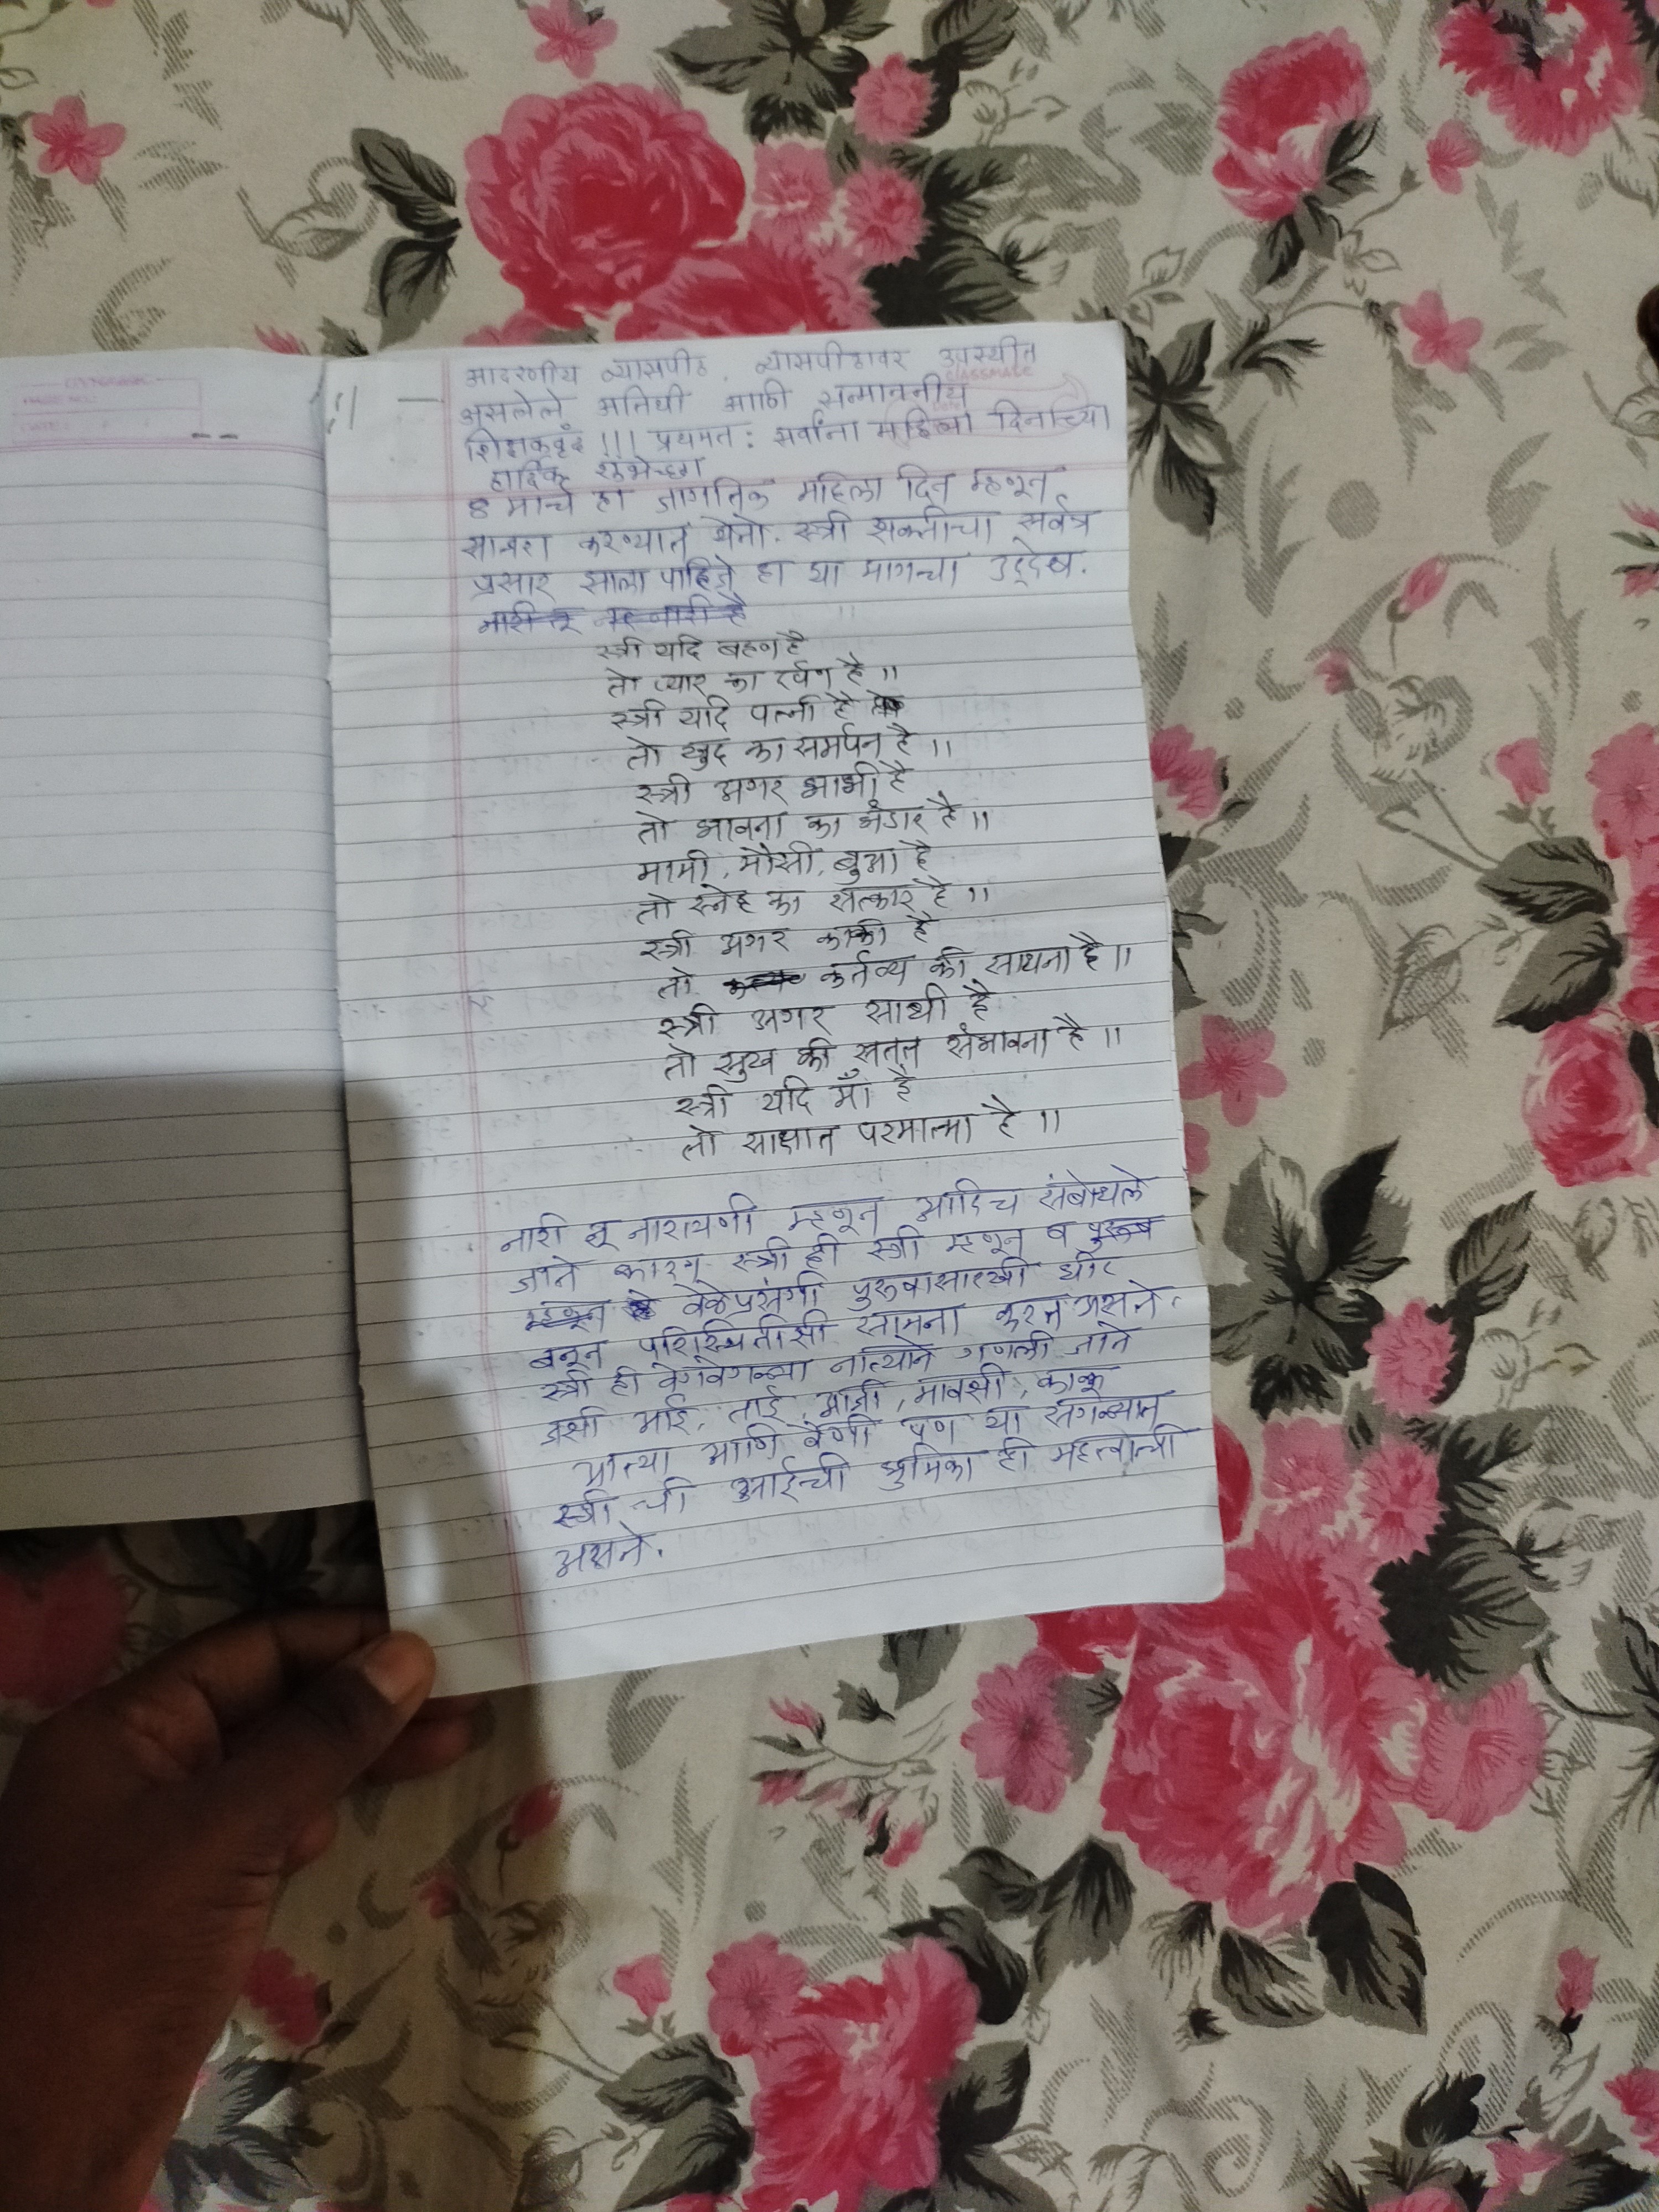 CLASSMATE
आदरणीय व्यासपीठ, व्यासपीठावर उपस्थीत
असलेले अतिथी आणि सन्माननीय
शिक्षकवृंद !!! प्रथमत: सर्वांना महिला दिनाच्या
हार्दिक शुभेच्छा
8 मार्च हा जागतिक महिला दिन म्हणून
साजरा करण्यात येतो. स्त्री शक्तीचा सर्वत्र
प्रसार झाला पाहिजे हा या मागचा उद्देश.
स्त्री यदि बहण है
तो प्यार का दर्पण है ॥
स्त्री यदि पत्नी है
तो खुद का समर्पन है ॥
स्त्री अगर भाभी है
तो भावना का भंडार है ॥
मामी, मौसी, बुआ है
तो स्नेह का सत्कार है ॥
स्त्री अगर काकी है
तो कर्तव्य की साधना है ॥
स्त्री अगर साथी है
तो सुख की सतत संभावना है ॥
स्त्री यदि माँ है
तो साक्षात परमात्मा है ॥
नारी तू नारायणी म्हणून आदिच संबोधले
जाते कारण स्त्री ही स्त्री म्हणून व
वेळेप्रसंगी पुरुषासारखी धीट
बनून परिस्थितीसी सामना करत असते.
स्त्री ही वेगवेगळ्या नात्याने गणली जाते
जशी आई, ताई, आजी, मावसी, काकू
आत्या आणि वैणी पण या सगळ्यात
स्त्री ची आईची भुमिका ही महत्वाची
असते.